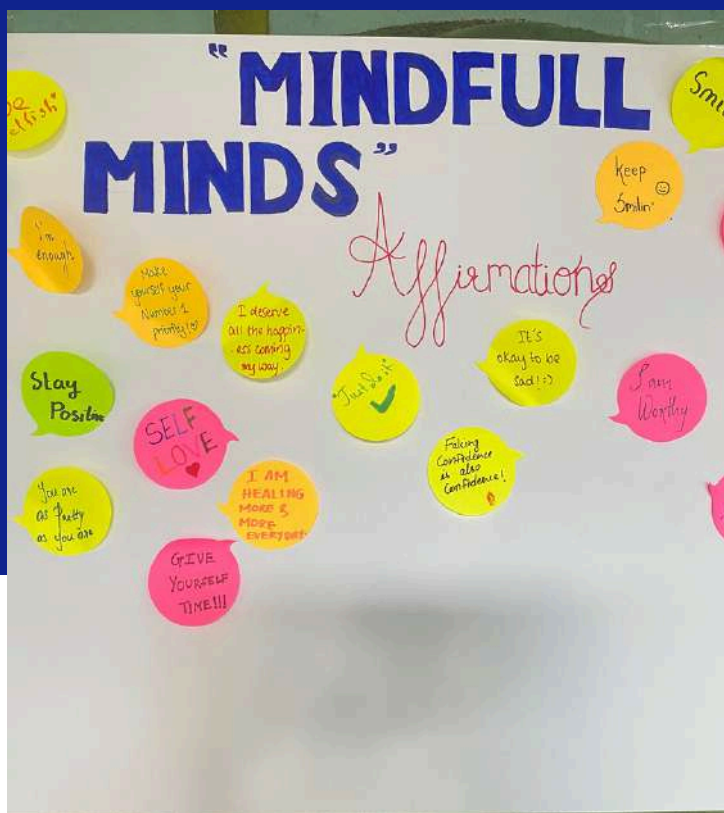 "MINDFULL
MINDS"
Affirmations
Smil
keep
Smilin'
I'm
enough
Make
yourself your
Number 1
priority!
I deserve
all the happin-
ess coming
my way.
It's
okay to be
sad! :)
"Just do it"
I am
Worthy
Stay
Positive
SELF
LOVE
Faking
Confidence
is also
Confidence!
You are
as Pretty
as you are
I AM
HEALING
MORE &
MORE
EVERYDAY
GIVE
YOURSELF
TIME!!!